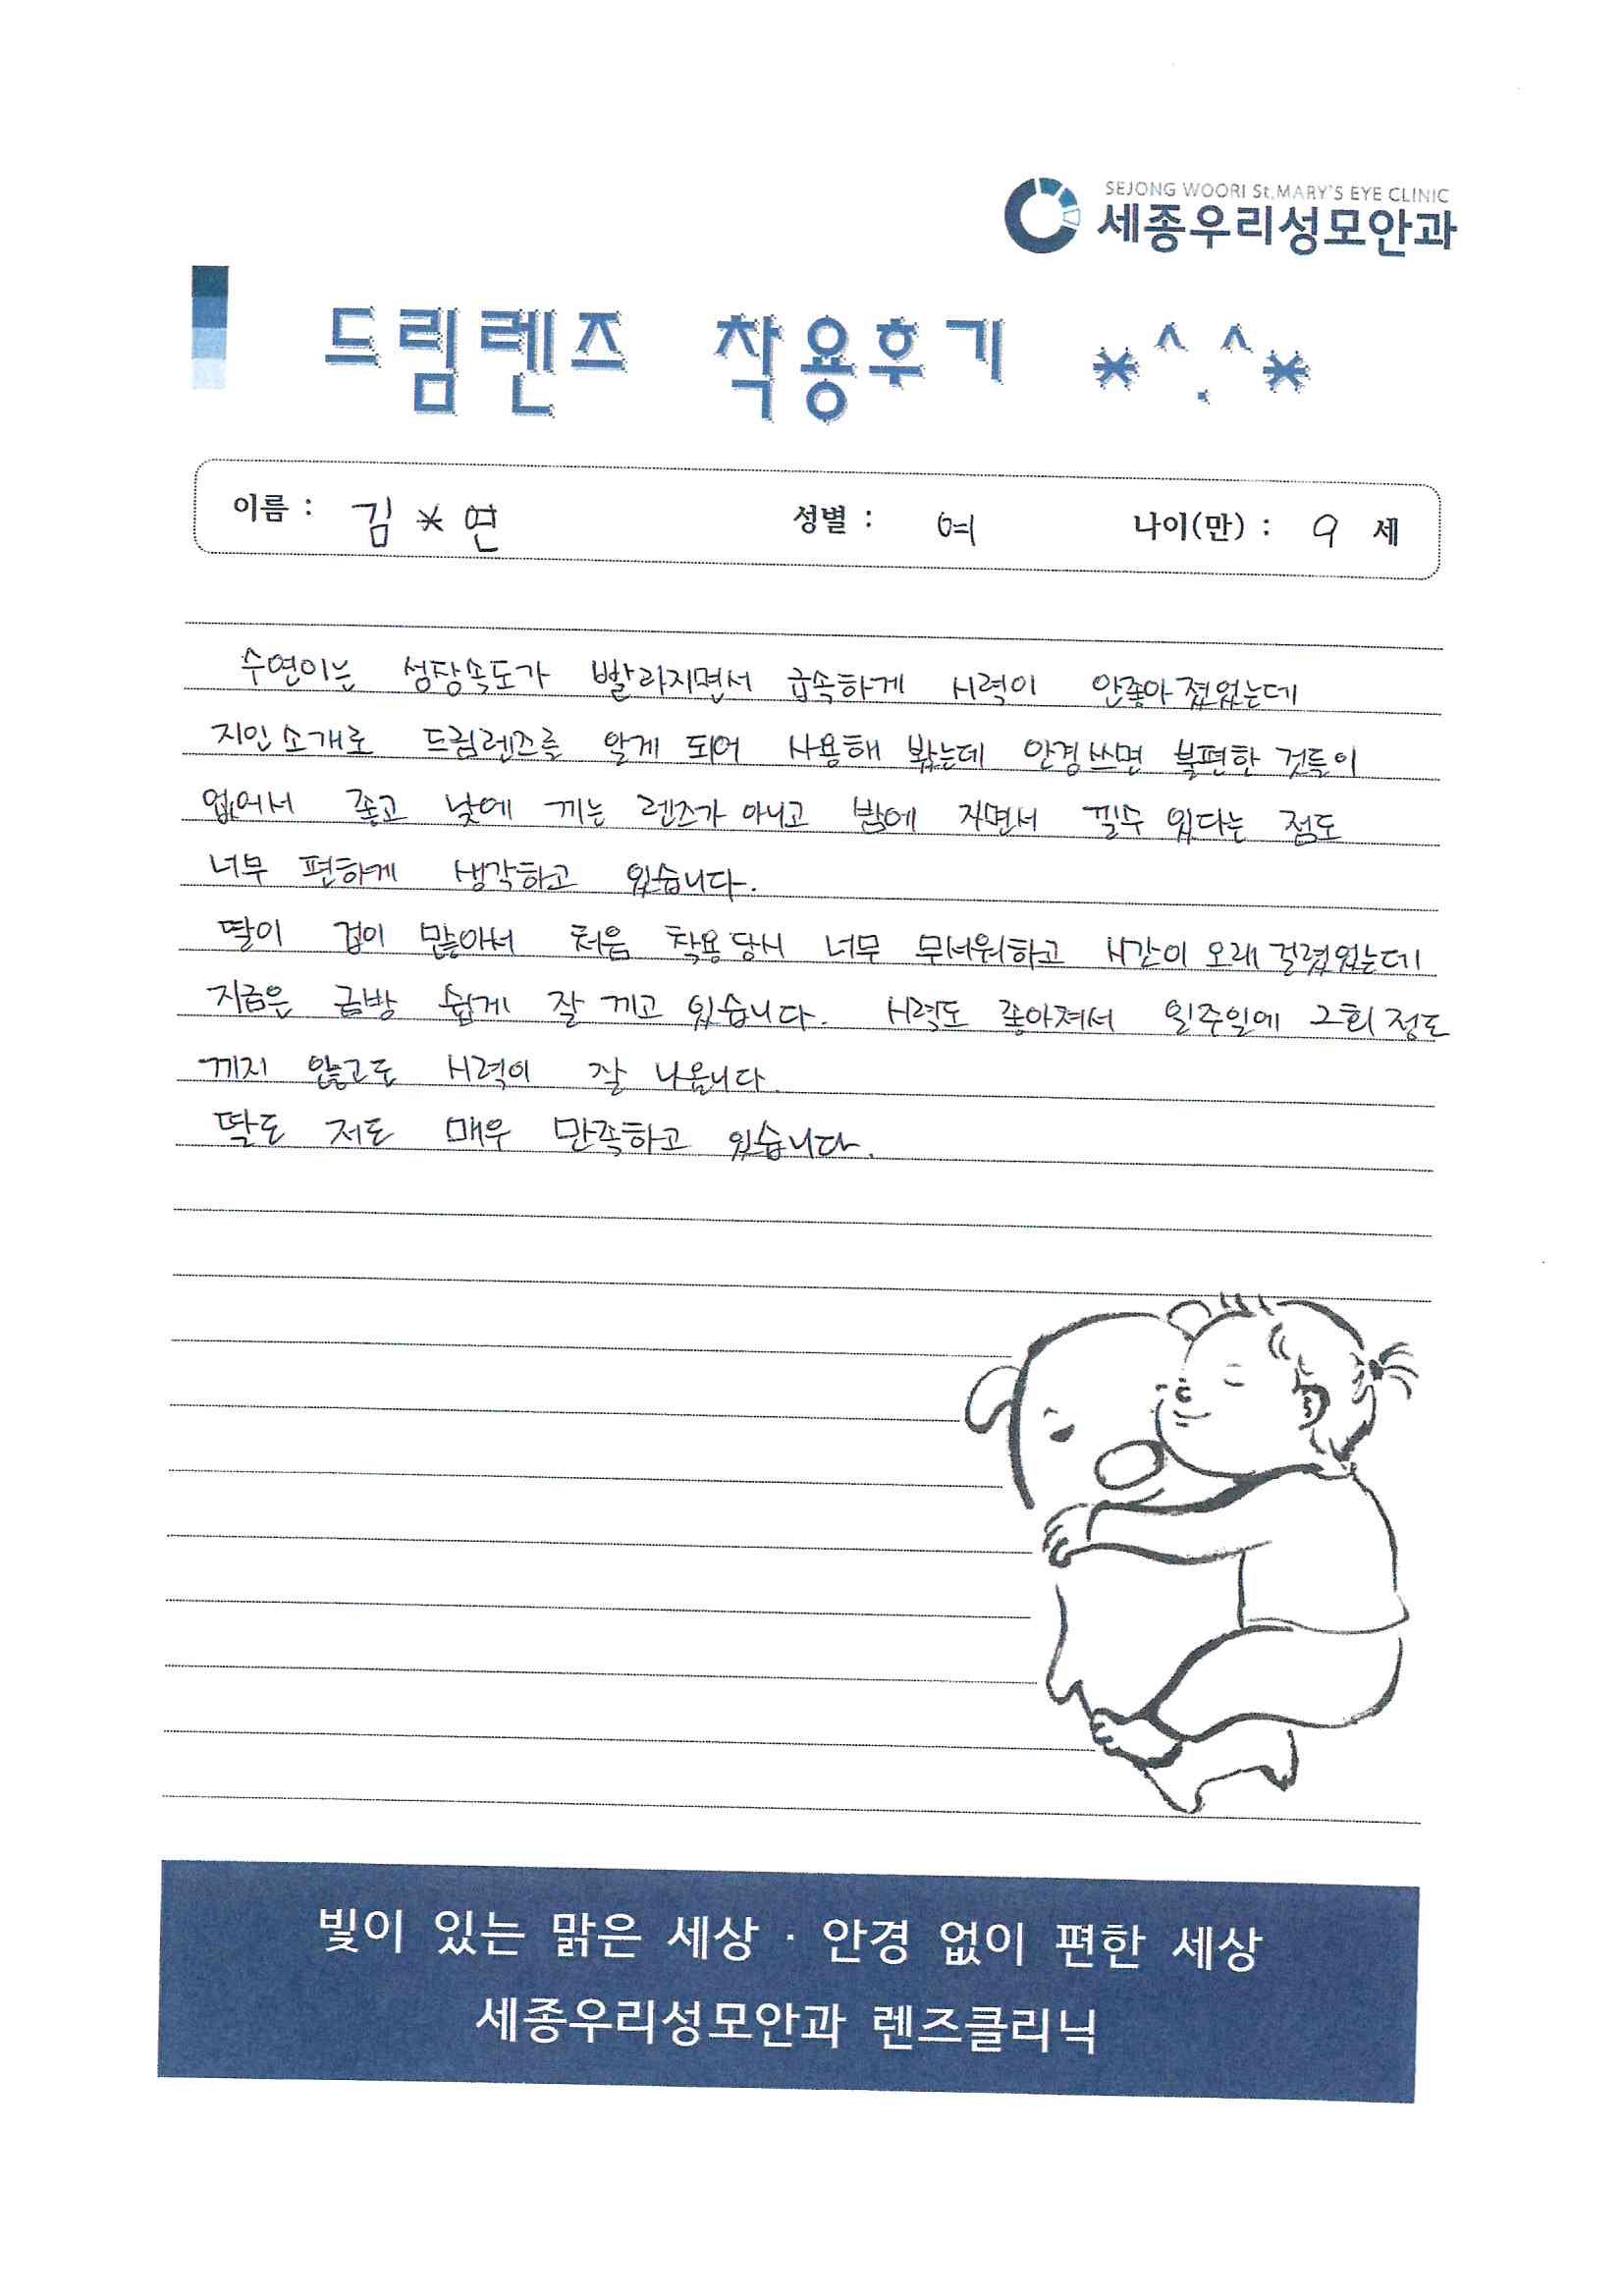 SEJONG WOORI St.MARY'S EYE CLINIC
세종우리성모안과
드림렌즈 착용후기 *^.^*
이름 : 김*연 성별 : 여 나이(만) : 9 세
수연이는 성장속도가 빨라지면서 급속하게 시력이 안좋아 졌었는데
지인소개로 드림렌즈를 알게 되어 사용해 봤는데 안경쓰면 불편한 것들이
없어서 좋고 낮에 끼는 렌즈가 아니고 밤에 자면서 낄수 있다는 점도
너무 편하게 생각하고 있습니다.
딸이 겁이 많아서 처음 착용당시 너무 무서워하고 시간이 오래 걸렸었는데
지금은 금방 쉽게 잘 끼고 있습니다. 시력도 좋아져서 일주일에 2회 정도
끼지 않고도 시력이 잘 나옵니다.
딸도 저도 매우 만족하고 있습니다.
빛이 있는 맑은 세상 · 안경 없이 편한 세상
세종우리성모안과 렌즈클리닉